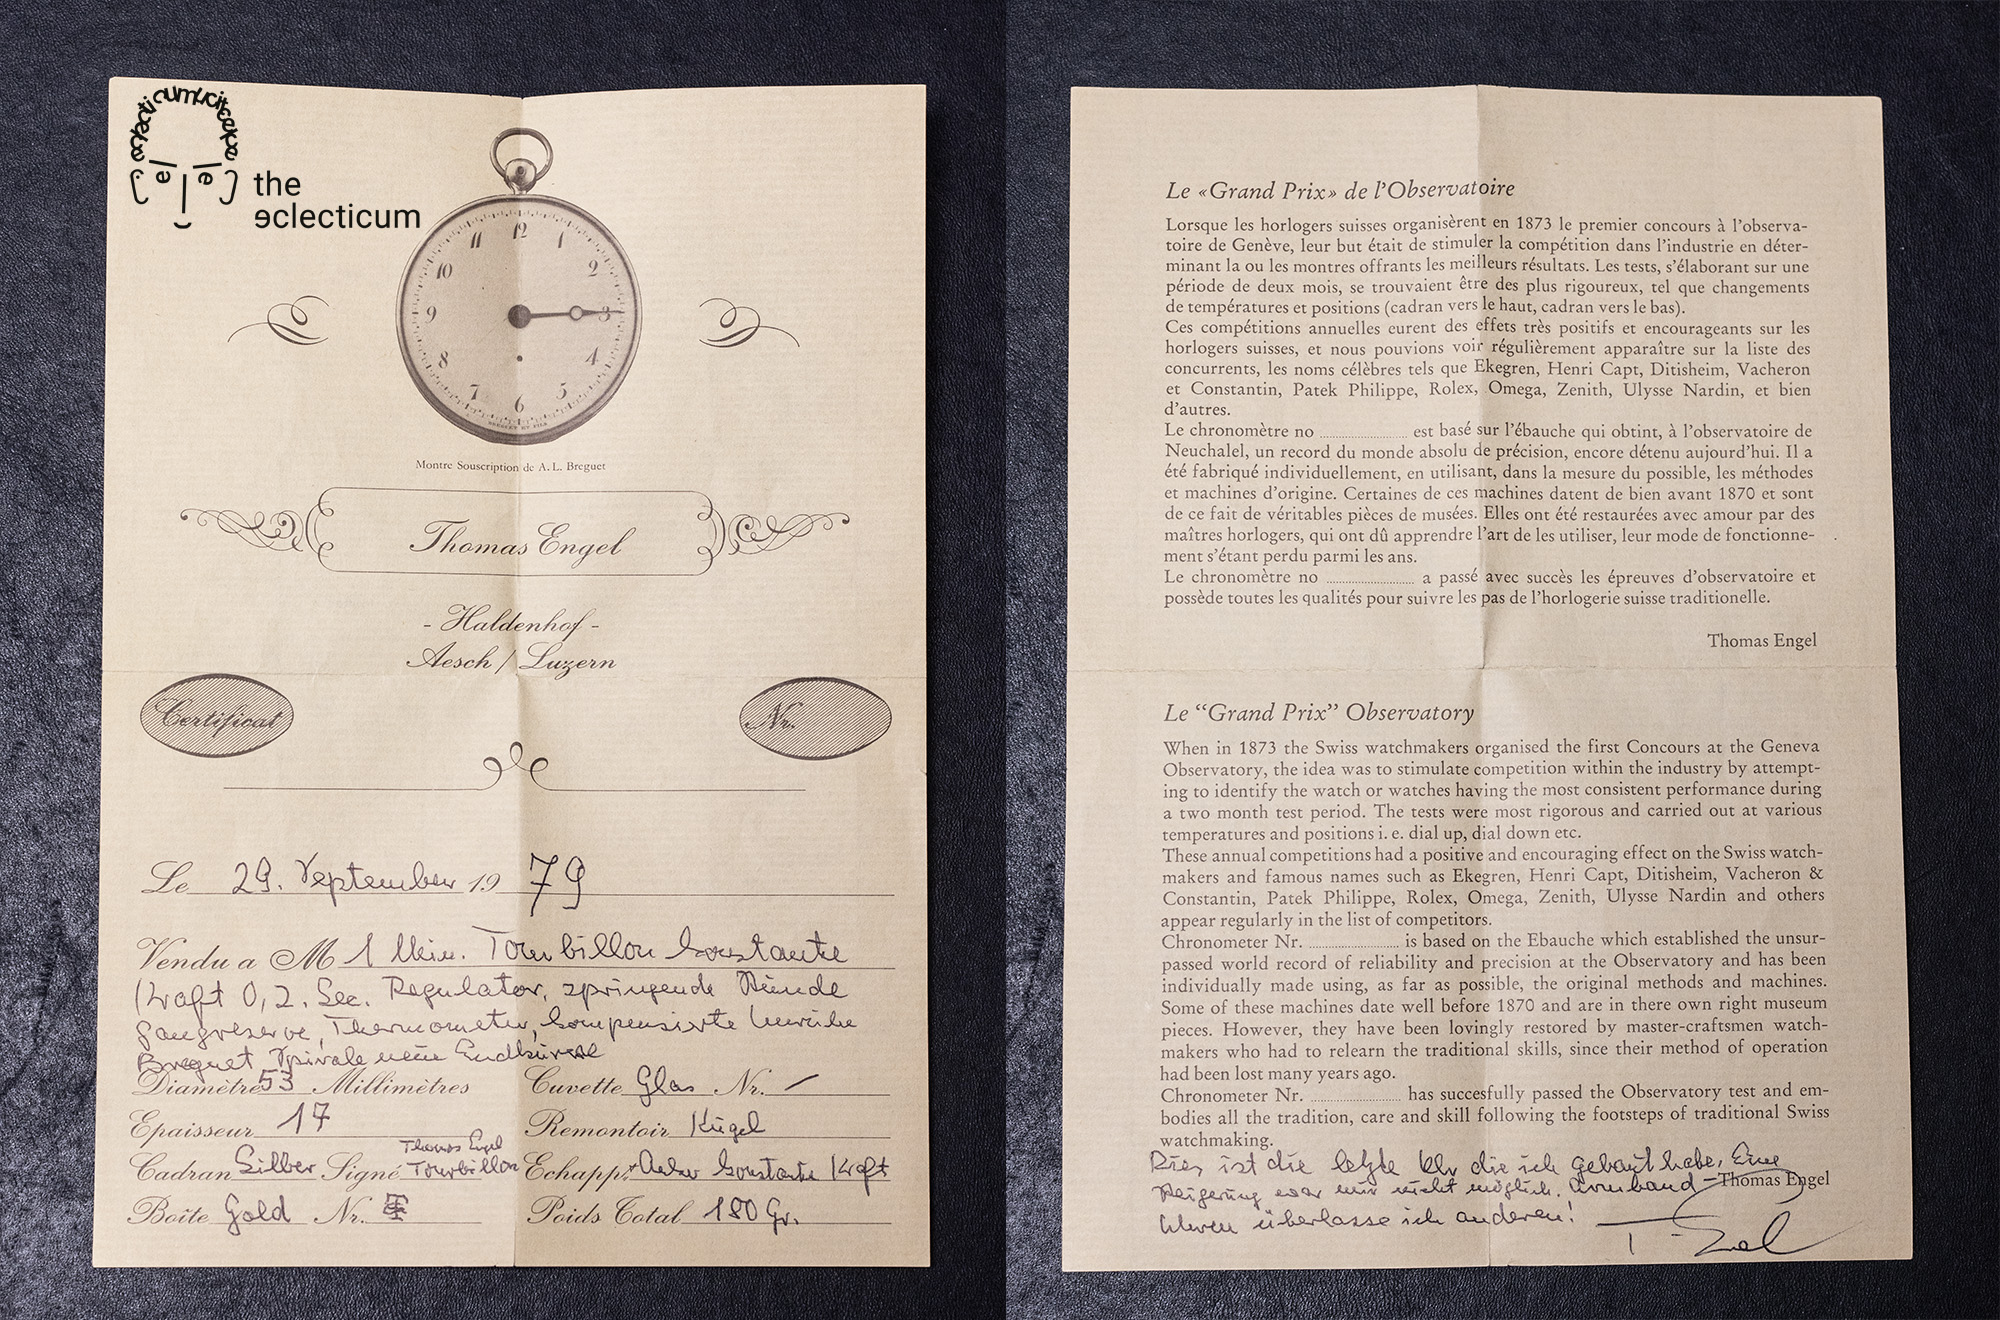 eclecticum
the
eclecticum
12
11
1
10
2
9
3
8
4
7
5
6
BREGUET ET FILS
Montre Souscription de A. L. Breguet
Thomas Engel
- Haldenhof -
Aesch / Luzern
Certificat
Nr.
Le 29. September 19 79
Vendu a M 1 Min. Tourbillon konstante
Kraft 0,2. Sec. Regulator, springende Stunde
gangreserve, Thermometer, kompensierte Unruhe
Breguet Spirale Endkurve
Diamètre 53 Millimètres Cuvette Glas Nr. /
Epaisseur 17 Remontoir Kugel
Cadran Silber Signé Thomas Engel Tourbillon Echappt Anker konstante Kraft
Boîte Gold Nr. Poids Total 180 Gr.
Le «Grand Prix» de l'Observatoire
Lorsque les horlogers suisses organisèrent en 1873 le premier concours à l'observa-
toire de Genève, leur but était de stimuler la compétition dans l'industrie en déter-
minant la ou les montres offrants les meilleurs résultats. Les tests, s'élaborant sur une
période de deux mois, se trouvaient être des plus rigoureux, tel que changements
de températures et positions (cadran vers le haut, cadran vers le bas).
Ces compétitions annuelles eurent des effets très positifs et encourageants sur les
horlogers suisses, et nous pouvions voir régulièrement apparaître sur la liste des
concurrents, les noms célèbres tels que Ekegren, Henri Capt, Ditisheim, Vacheron
et Constantin, Patek Philippe, Rolex, Omega, Zenith, Ulysse Nardin, et bien
d'autres.
Le chronomètre no .................... est basé sur l'ébauche qui obtint, à l'observatoire de
Neuchalel, un record du monde absolu de précision, encore détenu aujourd'hui. Il a
été fabriqué individuellement, en utilisant, dans la mesure du possible, les méthodes
et machines d'origine. Certaines de ces machines datent de bien avant 1870 et sont
de ce fait de véritables pièces de musées. Elles ont été restaurées avec amour par des
maîtres horlogers, qui ont dû apprendre l'art de les utiliser, leur mode de fonctionne-
ment s'étant perdu parmi les ans.
Le chronomètre no .................... a passé avec succès les épreuves d'observatoire et
possède toutes les qualités pour suivre les pas de l'horlogerie suisse traditionelle.
Thomas Engel
Le “Grand Prix” Observatory
When in 1873 the Swiss watchmakers organised the first Concours at the Geneva
Observatory, the idea was to stimulate competition within the industry by attempt-
ing to identify the watch or watches having the most consistent performance during
a two month test period. The tests were most rigorous and carried out at various
temperatures and positions i. e. dial up, dial down etc.
These annual competitions had a positive and encouraging effect on the Swiss watch-
makers and famous names such as Ekegren, Henri Capt, Ditisheim, Vacheron &
Constantin, Patek Philippe, Rolex, Omega, Zenith, Ulysse Nardin and others
appear regularly in the list of competitors.
Chronometer Nr. .................... is based on the Ebauche which established the unsur-
passed world record of reliability and precision at the Observatory and has been
individually made using, as far as possible, the original methods and machines.
Some of these machines date well before 1870 and are in there own right museum
pieces. However, they have been lovingly restored by master-craftsmen watch-
makers who had to relearn the traditional skills, since their method of operation
had been lost many years ago.
Chronometer Nr. .................... has succesfully passed the Observatory test and em-
bodies all the tradition, care and skill following the footsteps of traditional Swiss
watchmaking.
Dies ist die letzte Uhr die ich gebaut habe. Eine
Steigerung war mir nicht möglich. Armband -
Thomas Engel
Uhren überlasse ich anderen!